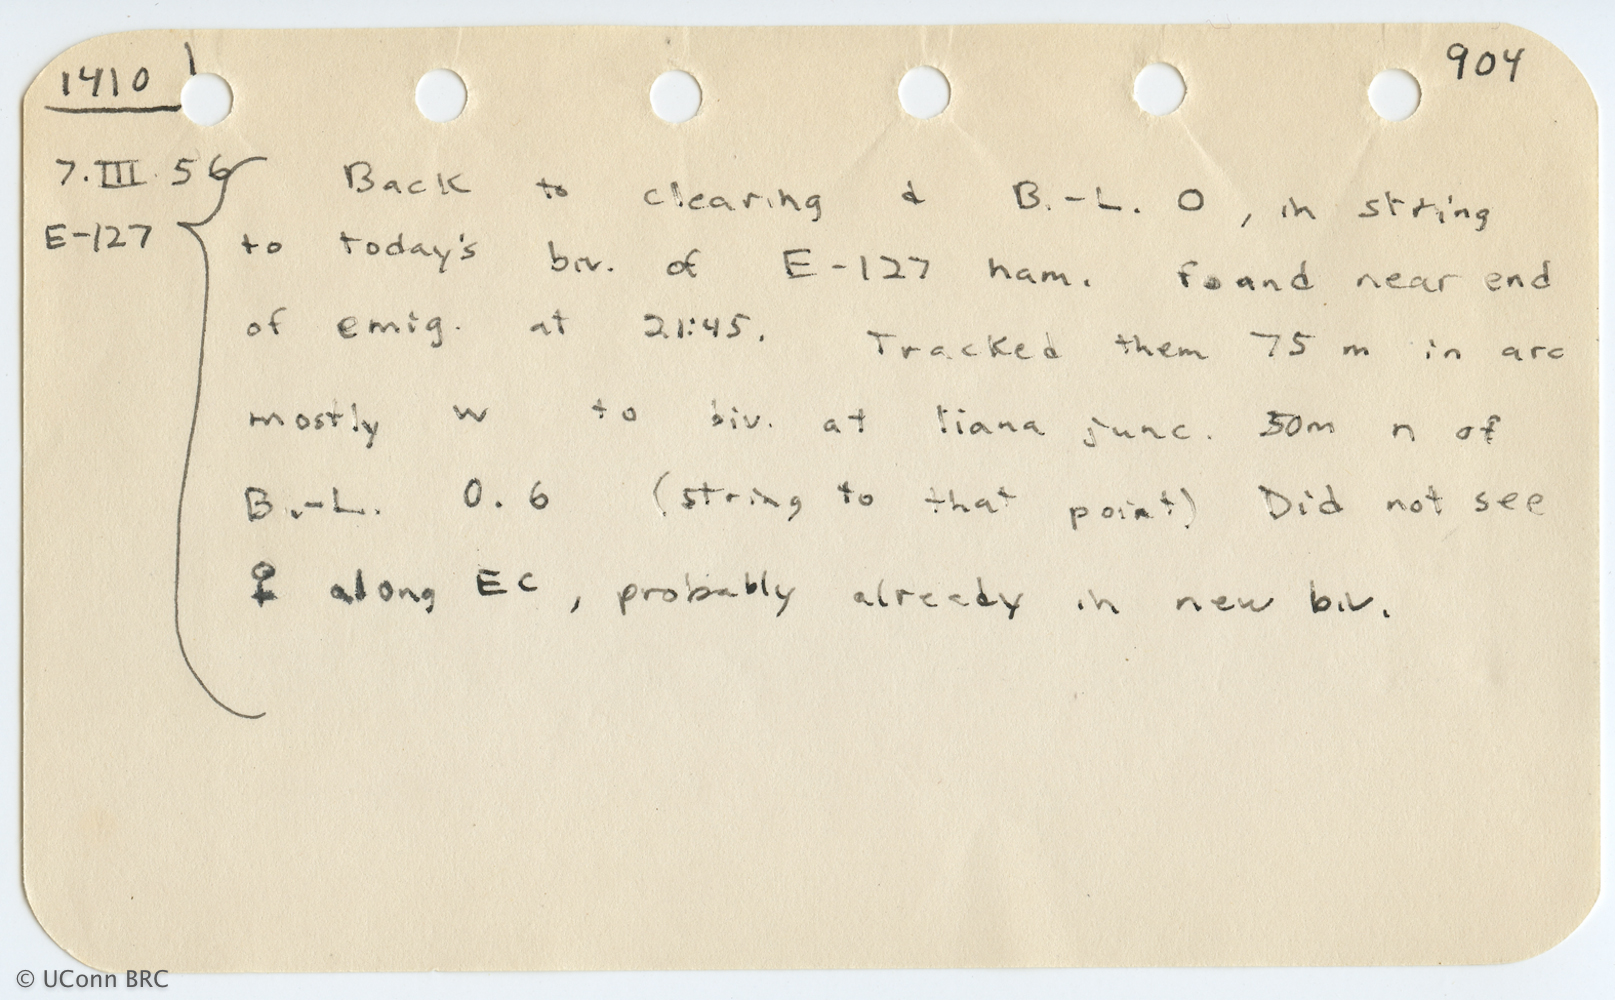 1410
904
7.III.56
E-127
Back to clearing & B.-L. O, in string
to today's biv. of E-127 ham. Found near end
of emig. at 21:45. Tracked them 75 m in arc
mostly w to biv. at liana junc. 50m n of
B.-L. 0.6 (string to that point) Did not see
♀ along EC, probably already in new biv.
© UConn BRC